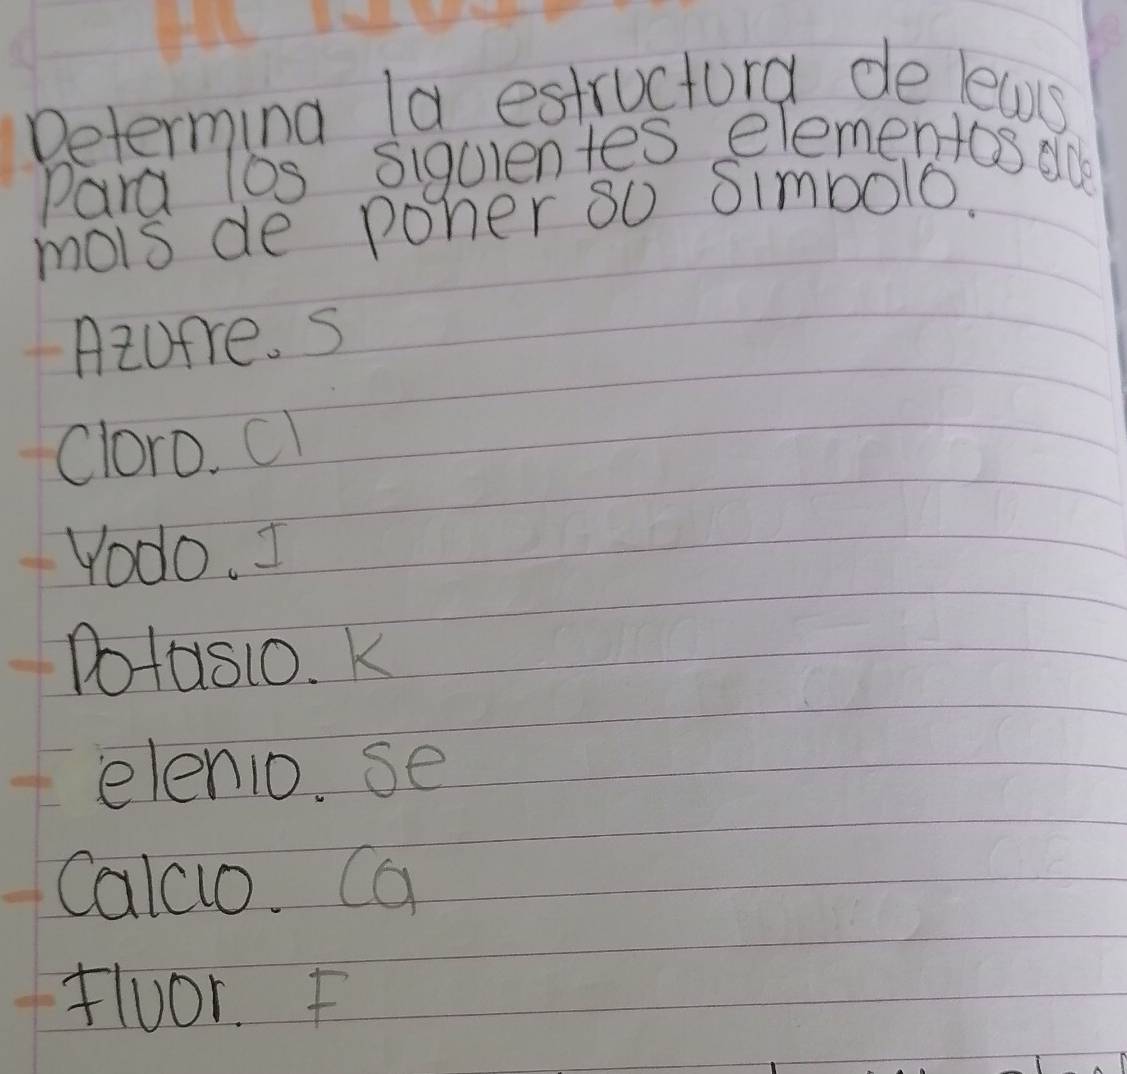 Determina la estructura de lewis
Para los siguientes elementos ade
mas de poner su simbolo.
- Azufre. S
- Cloro. Cl
- Yodo. I
- Potasio. K
- elenio. Se
- Calcio. Ca
- Fluor. F